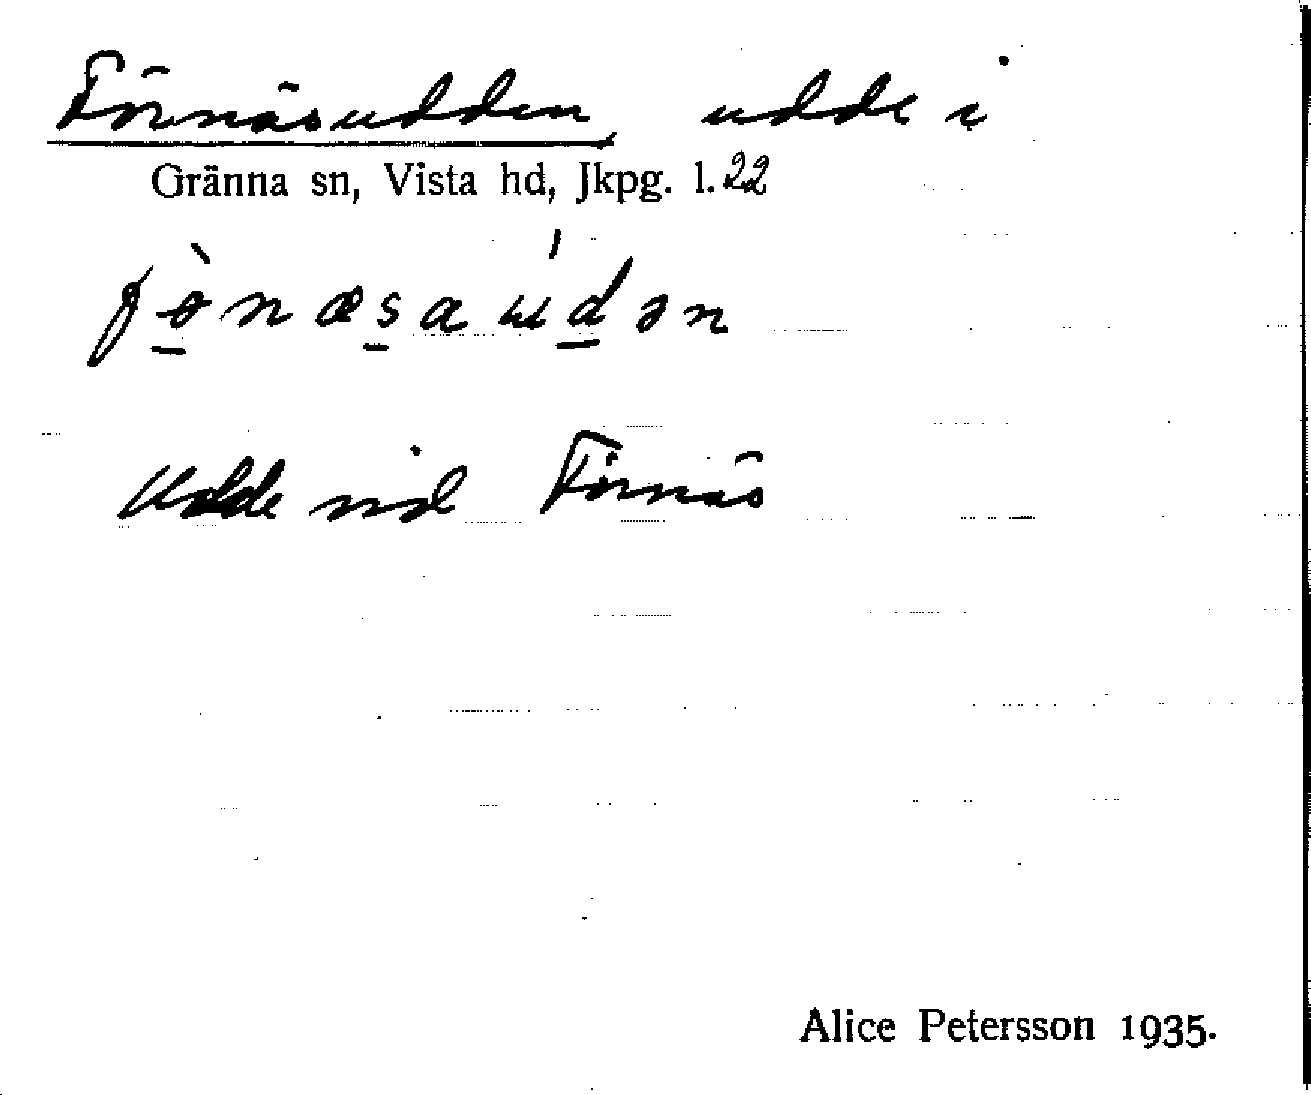 Förnäsudden, udde i
Gränna sn, Vista hd, Jkpg. l. 22
Udde vid Förnäs
Alice Petersson 1935.